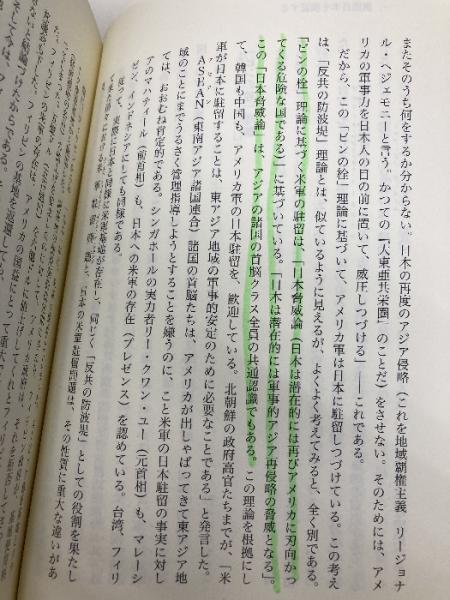 またそのうち何をするか分からない。日本の再度のアジア侵略（これを地域覇権主義、リージョナ
ル・ヘジェモニーと言う。かつての「大東亜共栄圏」のことだ）をさせない。そのためには、アメ
リカの軍事力を日本人の目の前に置いて、威圧しつづける」――これである。
だから、この「ビンの栓」理論に基づいて、アメリカ軍は日本に駐留しつづけている。この考え
は、「反共の防波堤」理論とは、似ているように見えるが、よくよく考えてみると、全く別である。
「ビンの栓」理論に基づく米軍の駐留は、「日本脅威論（日本は潜在的には再びアメリカに刃向かっ
てくる危険な国である）」に基づいている。「日本は潜在的には軍事的アジア再侵略の脅威となる」。
この「日本脅威論」は、アジアの諸国の首脳クラス全員の共通認識でもある。この理論を根拠にし
て、韓国も中国も、アメリカ軍の日本駐留を、歓迎している。北朝鮮の政府高官たちまでが、「米
軍が日本に駐留することは、東アジア地域の軍事的安定のために必要なことである」と発言した。
ASEAN（東南アジア諸国連合）諸国の首脳たちは、アメリカが出しゃばってきて東アジア地
域のことにまでうるさく管理指導しようとすることを嫌うのに、こと米軍の日本駐留の事実に対し
ては、おおむね肯定的である。シンガポールの実力者リー・クワン・ユー（元首相）も、マレーシ
アのマハティール（前首相）も、日本への米軍の存在（プレゼンス）を認めている。台湾、フィリ
ピン、インドネシアにしても同様である。
従って、実際に日本と同様に米軍基地が存在し、同じく「反共の防波堤」としての役割を果たし
て来た
日本の米軍駐留問題は、その性質に重大な違いがあ